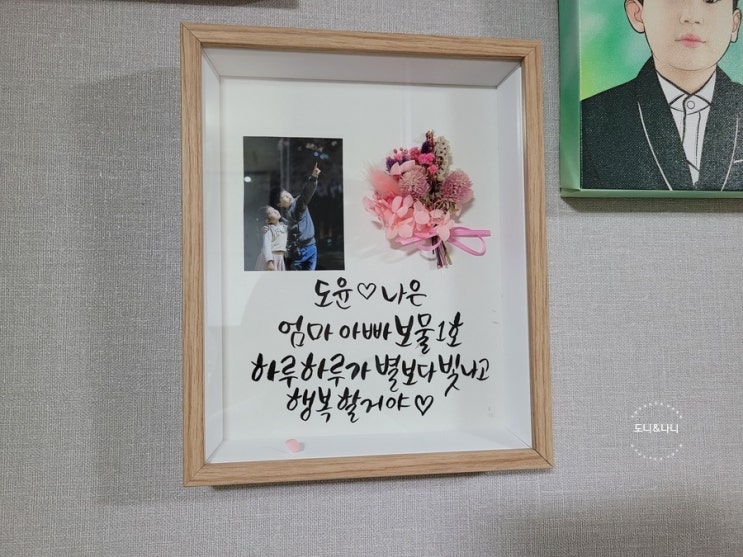 도윤♡나은
엄마 아빠 보물1호
하루하루가 별보다 빛나고
행복할거야♡
도니&나니